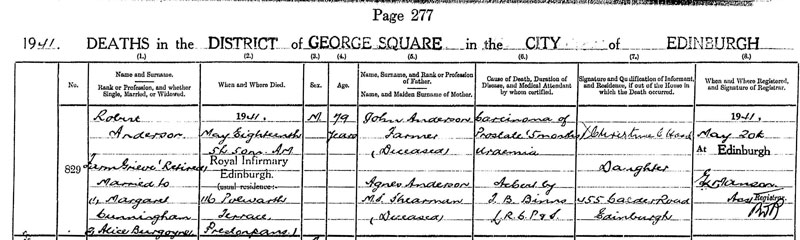 Page 277
1941. DEATHS in the DISTRICT of GEORGE SQUARE in the CITY of EDINBURGH
(1.) (2.) (3.) (4.) (5.) (6.) (7.) (8.)
No.
Name and Surname.
Rank or Profession, and whether
Single, Married, or Widowed.
When and Where Died.
Sex.
Age.
Name, Surname, and Rank or Profession
of Father.
Name, and Maiden Surname of Mother.
Cause of Death, Duration of
Disease, and Medical Attendant
by whom certified.
Signature and Qualification of Informant,
and Residence, if out of the House in
which the Death occurred.
When and Where Registered,
and Signature of Registrar.
829
Robert
Anderson
Farm Grieve, Retired
Married to
(1) Margaret
Cunningham
(2) Alice Burgoyne
1941,
May Eighteenth
5h 50m. AM
Royal Infirmary
Edinburgh.
(usual residence:
116 Polwarth
Terrace,
Prestonpans)
M
79
years
John Anderson
Farmer
(Deceased)
Agnes Anderson
M.S. Shearman
(Deceased)
Carcinoma of
Prostate 5 months
Uraemia
As cert by
J. B. Binns
L.R.C.P & S.
Daughter
455 Calder Road
Edinburgh
1941,
May 20th
At Edinburgh
Registrar